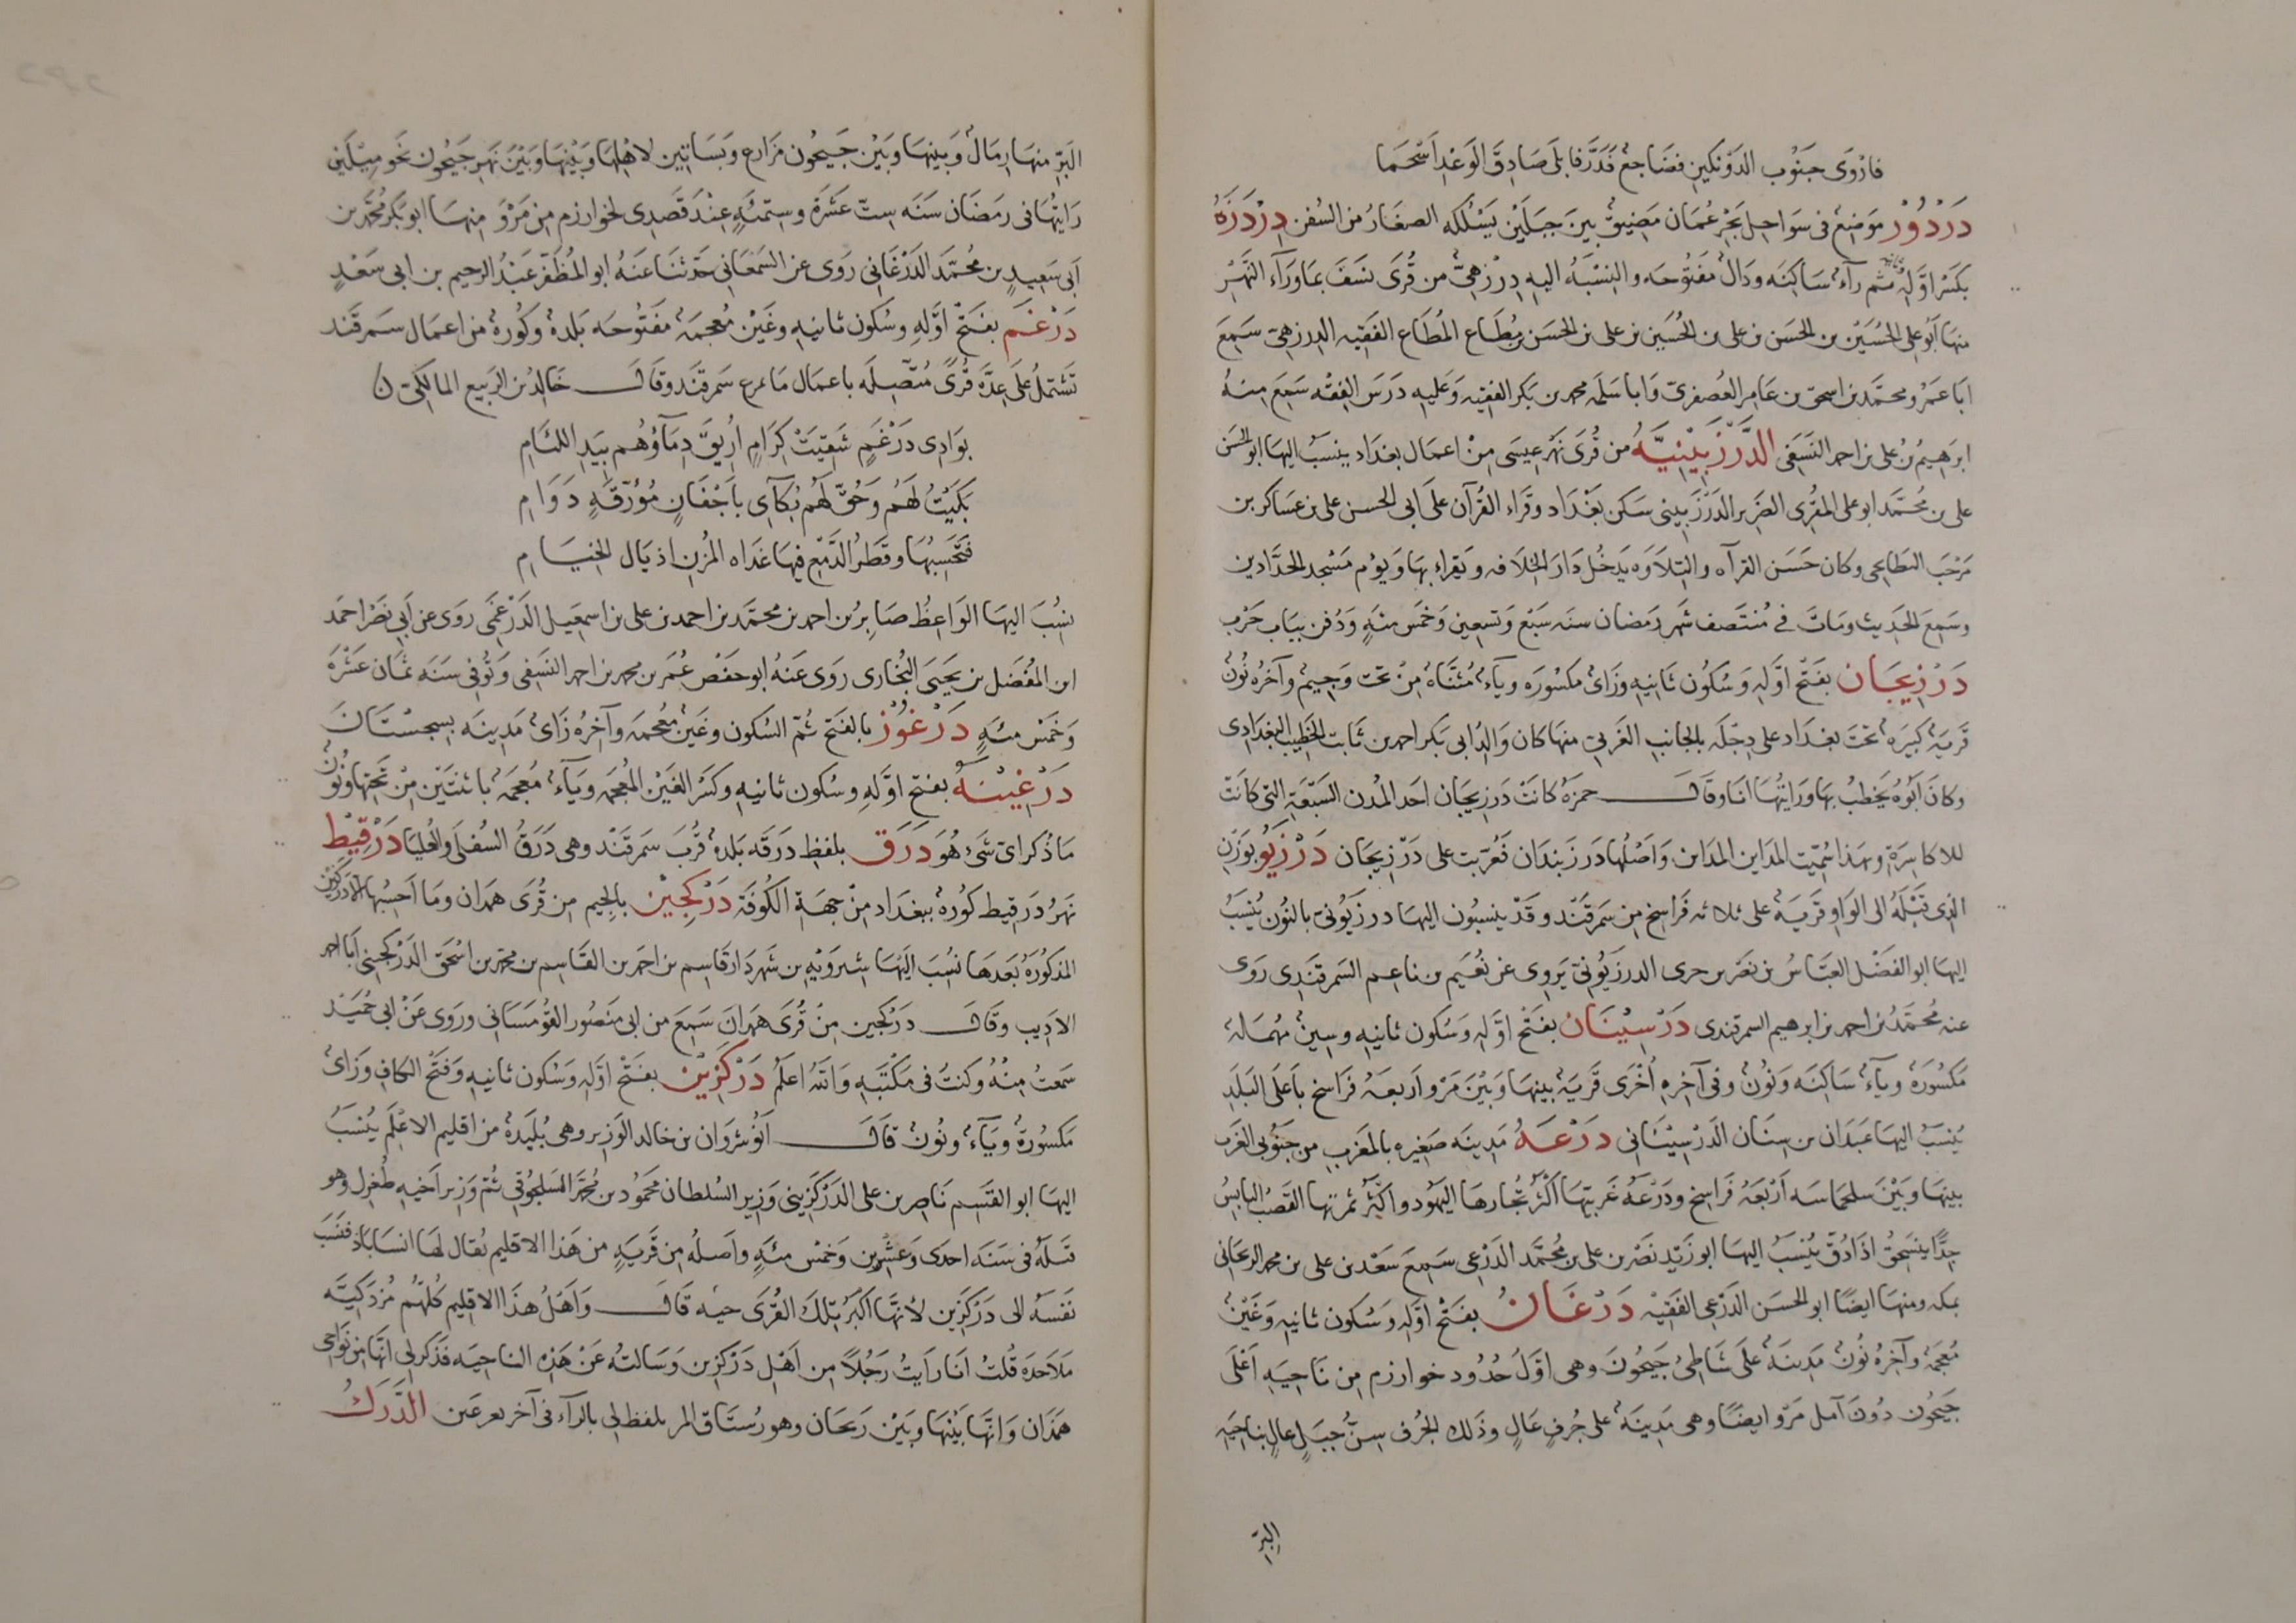 فاروى جنوب الدونكين فضاجع فدرّفا بلى صادق الوعد اسحما
دَرْدُوْر موضع فى سواحل بحر عمان مضيق بين جبلين يسلكه الصغار من السفن دِرْدَزَهُ
بكسر اوّله ثم رآء ساكنه ودال مفتوحه والنسبه اليه دِرْزِهىّ من قرى نسف بماورآء النهر
منها ابو على الحسين بن الحسن بن على بن الحسين بن على بن الحسن بن مطاع المطاع الفقيه الدرزهى سمع
ابا عمرو محمّد بن اسحق بن عامر العصفرى وابا سلمه محمد بن بكر الفقيه وعليه درس الفقه سمع منهُ
ابرهيم بن على بن احمد النسفى الدَّرْزَبِيْنِيَّهُ من قرى نهر عيسى من اعمال بغداد ينسب اليها ابو الحسن
على بن محمّد ابو على المقرى الضرير الدرزبينى سكن بغداد وقراء القرآن على ابى الحسن على بن عساكر بن
مرحب البطايحى وكان حسن القرآه والتلاوه يدخل دار الخلافه ويقراء بها ويوم مسجد الحدّادين
وسمع الحديث ومات فى منتصف شهر رمضان سنه سبع وتسعين وخمس مئهٍ ودفن بباب حرب
دَرْزِيجَان بفتح اوّله وسكون ثانيه وزاى مكسوره وياء مثناه من تحت وجيم وآخره نون
قريه كبيره تحت بغداد على دجله بالجانب الغربى منها كان والد ابى بكر احمد بن ثابت الخطيب البغدادى
وكان ابوه يخطب بها ورايتها انا وقال حمزه كانت درزيجان احد المدن السبعة التى كانت
للاكاسرة وبهذا سُميت المداين المداين واصلها درزبندان فعربت على درزيجان دَرْزِيُو بوزن
الذى قبله الى الواو قريه على ثلاثه فراسخ من سمرقند وقد ينسبون اليها درزيُونى بالنون ينسب
اليها ابو الفضل العبّاس بن نصر بن حرى الدرزيُونى يروى عن نعيم بن ناعم السمرقندى روى
عنه محمّد بن احمد بن ابرهيم السمرقندى دَرْسِيْنَان بفتح اوّله وسكون ثانيه وسين مهمله
مكسوره وياء ساكنه ونون وفى آخره اُخْرى قريه بينها وبين مرو اربعه فراسخ باعلى البلد
ينسب اليها عبدان بن سنان الدرسينانى دَرْعَهُ مدينه صغيره بالمغرب من جنوبى الغرب
بينها وبين سلحماسه اربعه فراسخ ودرعه غربيها اكثر تجارها اليهود واكثر ثمرتها القصب اليابس
جدًّا ينسحق اذا دُقّ ينسب اليها ابو زيد نصر بن على بن محمّد الدرعى سمع سعد بن على بن محمد الريحانى
بمكه ومنها ايضًا ابو الحسن الدرعى الفقيه دَرْغَانُ بفتح اوّله وسكون ثانيه وغين
معجمه وآخره نون مدينه على شاطئ جيحون وهى اوّل حدود خوارزم من ناحيه اعلى
جيحون دون آمل مرو ايضًا وهى مدينه على جرف عالٍ وذلك الجرف سنّ جبلٍ عالٍ بناحيه
البرّ
البرّ منها رمال وبينها وبين جيحون مزارع وبساتين لاهلها وبينها وبين نهر جيحون نحو ميلين
رايتها فى رمضان سنه ستّ عشره وستمئهٍ عند قصدى لخوارزم من مرو منها ابو بكر محمّد بن
ابى سعيد بن محمّد الدرغانى روى عن السمعانى حدثنا عنه ابو المظفّر عبد الرحيم بن ابى سعدٍ
دَرْغَم بفتح اوّله وسكون ثانيه وغين معجمه مفتوحه بلدة وكورة من اعمال سمرقند
تشتمل على عدّه قرى متّصله باعمال مايمرغ سمرقند وقال خالد بن الربيع المالكى
بوادى درغم شقيت كرام اُريق دمآؤهم بيد اللئام
بكيت لهم وحقّ لهم بكآى باجفان مؤرّقه دوام
فتحسبها وقطر الدمع فيها غداه المزن اذيال الخيام
نسب اليها الواعظ صابر بن احمد بن محمّد بن احمد بن على بن اسمعيل الدرغمى روى عن ابى نصر احمد
ابن المفضل بن يحيى البخارى روى عنه ابو حفص عمر بن محمد بن احمد النسفى وتوفى سنه ثمان عشره
وخمس مئهٍ دَرْغُوْز بالفتح ثمّ السكون وغين معجمه وآخره زاى مدينه بسجستان
دَرْغِيْنَهُ بفتح اوّله وسكون ثانيه وكسر الغين المعجمه وياء معجمه باثنتين من تحتها ونون
ما ذكر اى شىء هو دَرَق بلفظ درقه بلده قرب سمرقند وهى درق السفلى والعليا دَرْقِيْط
نهر درقيط كورة ببغداد من جهة الكوفة دَرْكَجِيْن بالجيم من قرى همدان وما احسبها الّا دركزين
المذكوره بعدها نسب اليها شيرويه بن شهردار قاسم بن احمد بن القاسم بن محمد بن اسحق الدركجينى ابا احمد
الاديب وقال دركجين من قرى همدان سمع من ابى منصور القومسانى وروى عن ابى حميد
سمعت منه وكنت فى مكتبه والله اعلم دَرْكَزِيْن بفتح اوّله وسكون ثانيه وفتح الكاف وزاى
مكسوره وياء ونون قال انوشروان بن خالد الوزير وهى بُليده من اقليم الاعلم ينسب
اليها ابو القسم ناصر بن على الدركزينى وزير السلطان محمود بن محمّد السلجوقى ثم وزير اخيه طغرل وهو
قتله فى سنه احدى وعشرين وخمس مئهٍ واصله من قريه من هذا الاقليم يقال لها انساباذ فنسب
نفسه الى دركزين لانّها اكبر تلك القرى حيه قال واهل هذا الاقليم كلّهم مزدكيّه
ملاحده قلت انا رايت رجلًا من اهل دركزين وسالته عن هذه الناحيه فذكر لى انها من نواحى
همذان وانّها بينها وبين زنجان وهو رستاق المر بلفظ لى بالرآء فى آخر بعر عين الدَّرَكُ